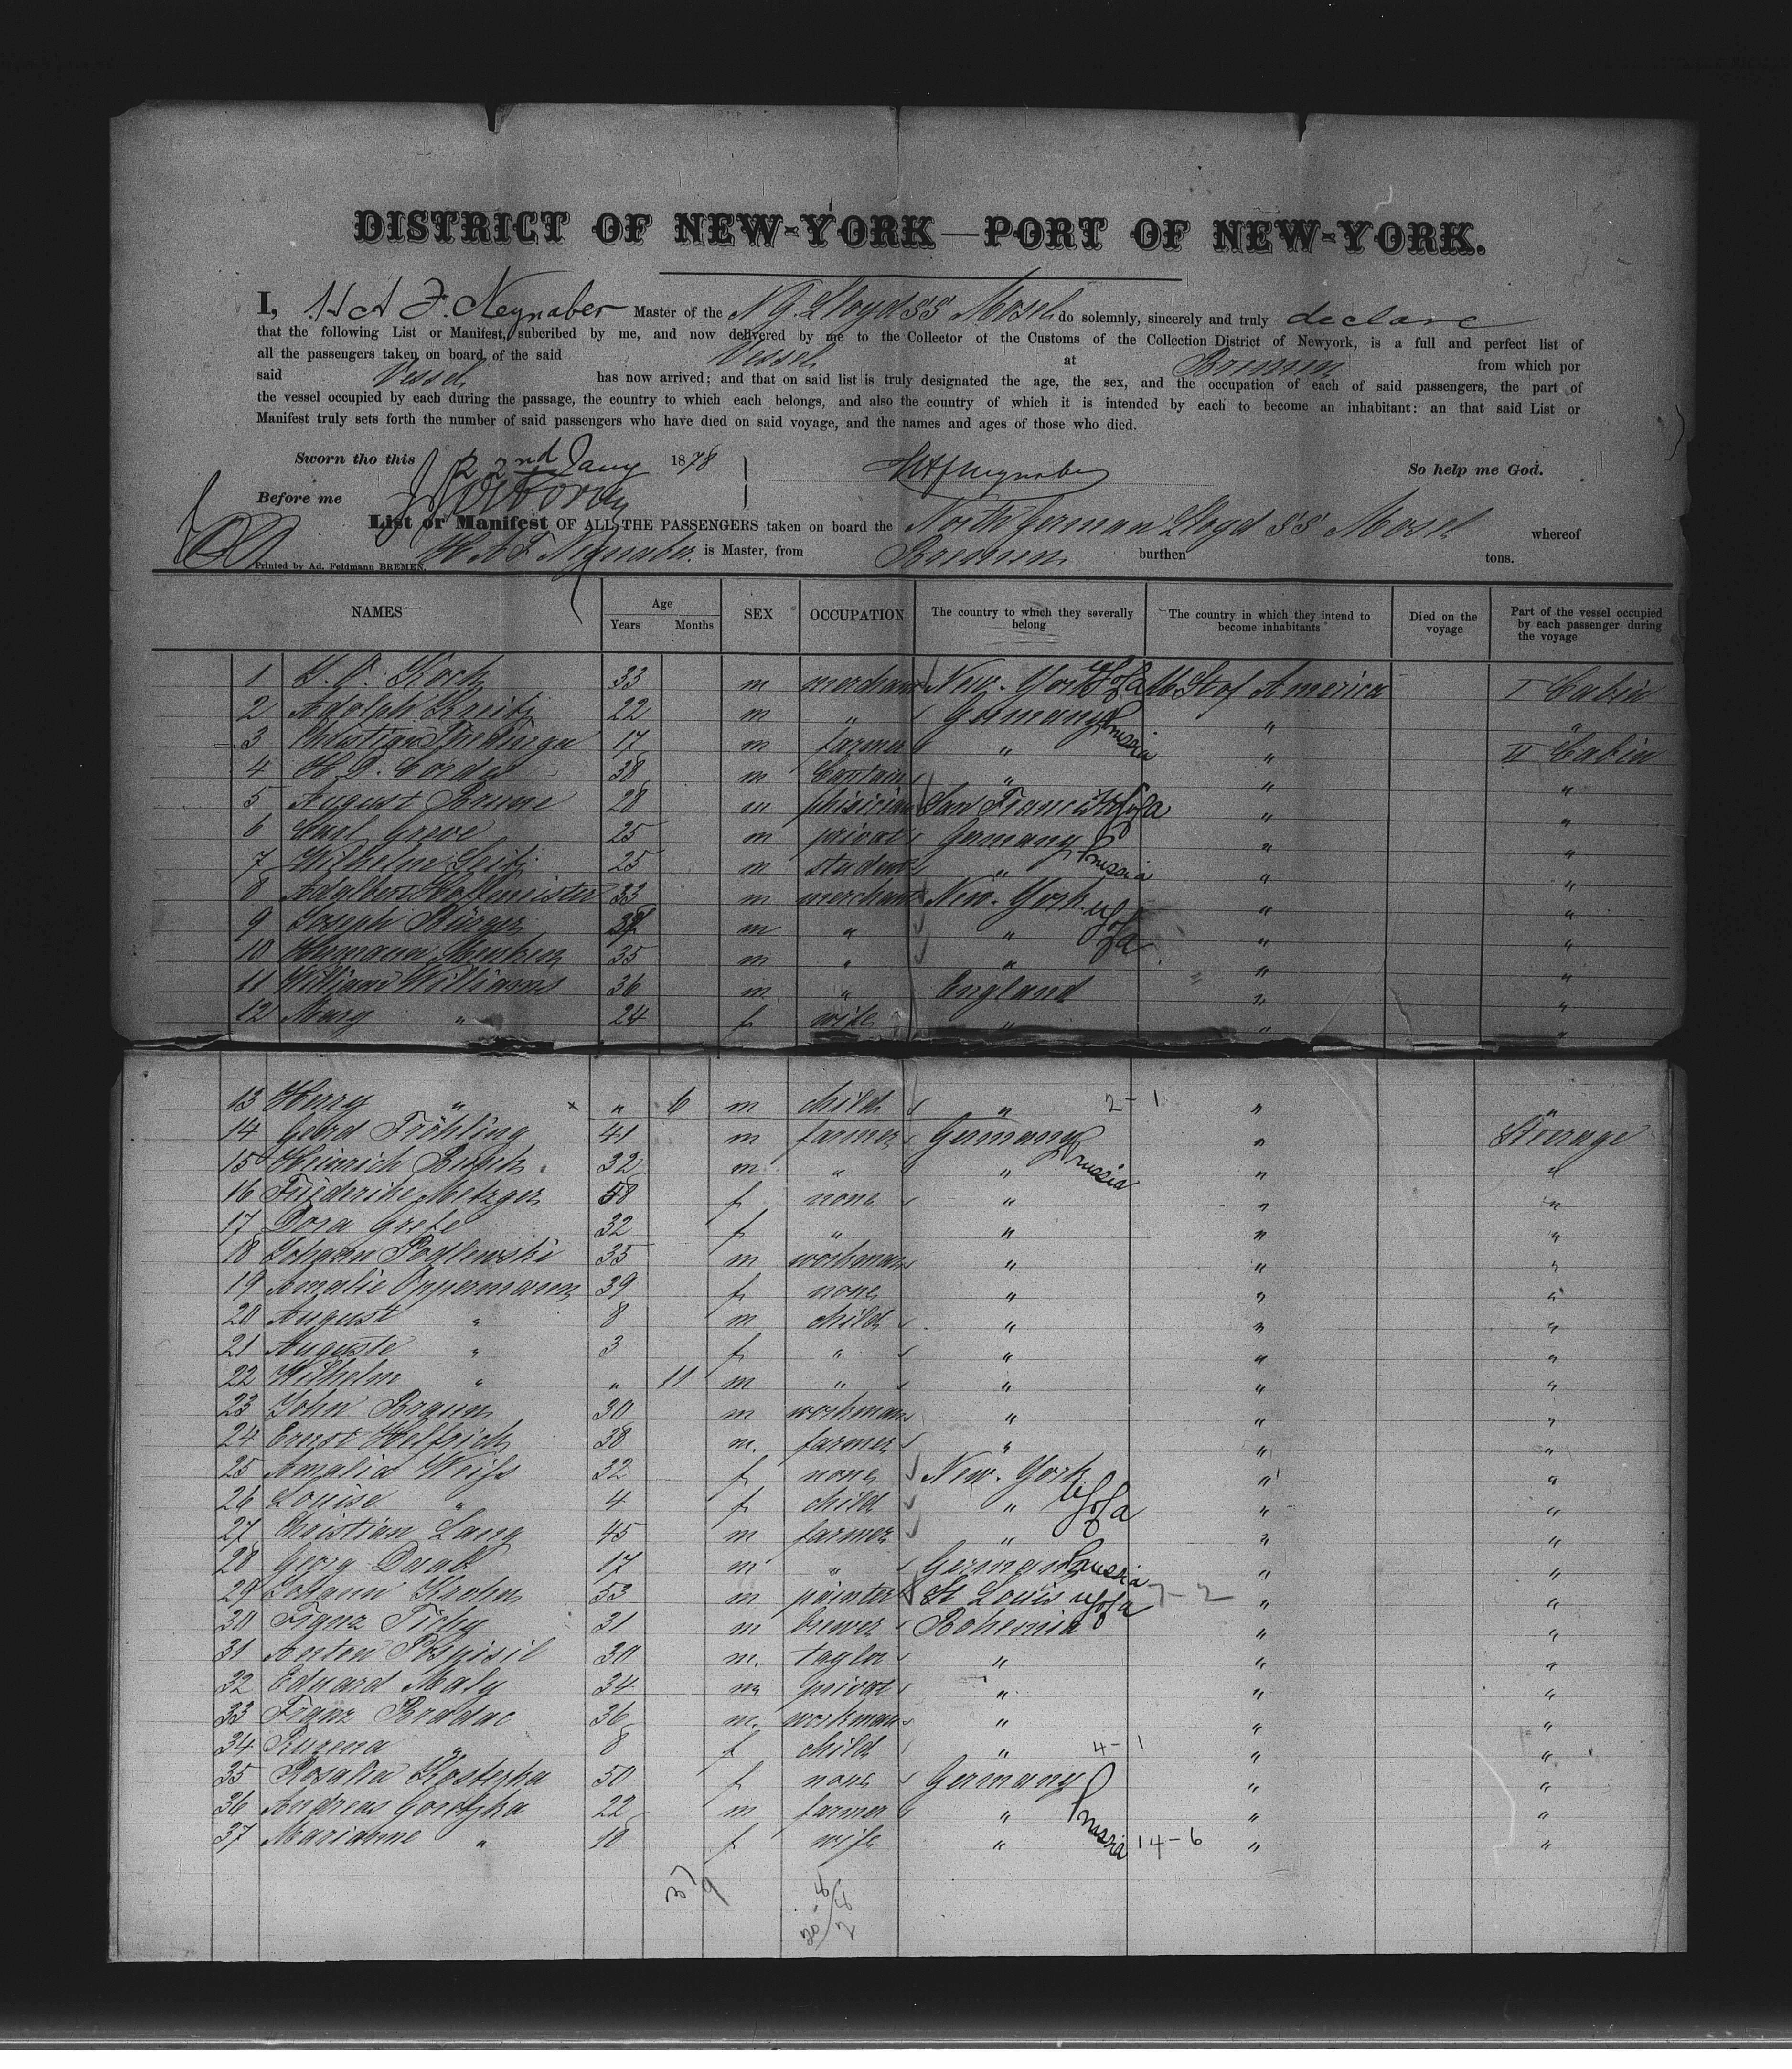 DISTRICT OF NEW-YORK—PORT OF NEW-YORK.
I, H A F. Neynaber Master of the N G. Lloyd SS Mosel do solemnly, sincerely and truly declare
that the following List or Manifest, subcribed by me, and now delivered by me to the Collector ot the Customs of the Collection District of Newyork, is a full and perfect list of
all the passengers taken on board of the said Vessel at Bremen from which por
said Vessel has now arrived; and that on said list is truly designated the age, the sex, and the occupation of each of said passengers, the part of
the vessel occupied by each during the passage, the country to which each belongs, and also the country of which it is intended by each to become an inhabitant: an that said List or
Manifest truly sets forth the number of said passengers who have died on said voyage, and the names and ages of those who died.
Sworn tho this 22nd Jany 1878 HAFNeynaber So help me God.
Before me
List or Manifest OF ALL THE PASSENGERS taken on board the North German Lloyd SS Mosel whereof
H A F Neynaber. is Master, from Bremen burthen tons.
Printed by Ad. Feldmann BREMEN.
NAMES Age Years Months SEX OCCUPATION The country to which they severally belong The country in which they intend to become inhabitants Died on the voyage Part of the vessel occupied by each passenger during the voyage
1 Koch 33 m merchant New-York U S of A U. St of America I Cabin
2 Adolph Kreitz 22 m " Germany Prussia " "
3 Christian 17 m farmer " " II Cabin
4 H. D. Cordes 38 m Captain " " "
5 August Braune 28 m phisician San Francisco U S of A " "
6 Carl Greve 25 m privat Germany Prussia " "
7 Wilhelm Seitz 25 m student " " "
8 Adalbert Hoffmeister 33 m merchant New-York U S of A " "
9 Joseph Bürger m " " " "
10 Hermann Menken 35 m " " " "
11 William Williams 36 m " England " "
12 Mary " 24 f wife " " "
13 Henry " " 6 m child " 2-1 " "
14 Gerd Fröhling 41 m farmer Germany Prussia " Steerage
15 Heinrich Busch 32 m " " " "
16 Friederike Metzger 58 f none " " "
17 Dora Grefe 32 f " " " "
18 Johann Podlewski 35 m workman " " "
19 Amalie Oppermann 39 f none " " "
20 August " 8 m child " " "
21 Auguste " 3 f " " " "
22 Wilhelm " " 11 m " " " "
23 John Braun 30 m workman " " "
24 Ernst Helfrich 38 m. farmer " " "
25 Amalia Weifs 32 f none New-York U S of A " "
26 Louise " 4 f child " " "
27 Christian Lang 45 m farmer " " "
28 Georg Daab 17 m " Germany Prussia " "
29 Johann Krohn 53 m painter St Louis U S of A 7-2 " "
30 Franz Tichy 31 m brewer Bohemia " "
31 Anton Pospisil 30 m. taylor " " "
32 Eduard Maly 34 m privat " " "
33 Franz Bradac 36 m. workman " " "
34 Ruzena " 8 f child " 4-1 " "
35 Rosalia Kosterka 50 f none Germany Prussia " "
36 Andreas Goretzka 22 m farmer " " "
37 Marianne " 18 f wife " 14-6 " "
37
9